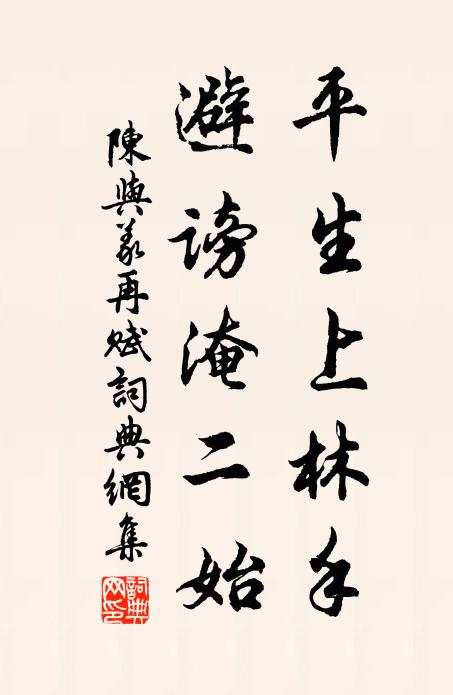 平生上林手
避謗淹二始
陳與義再賦詞典網集
詞典网印